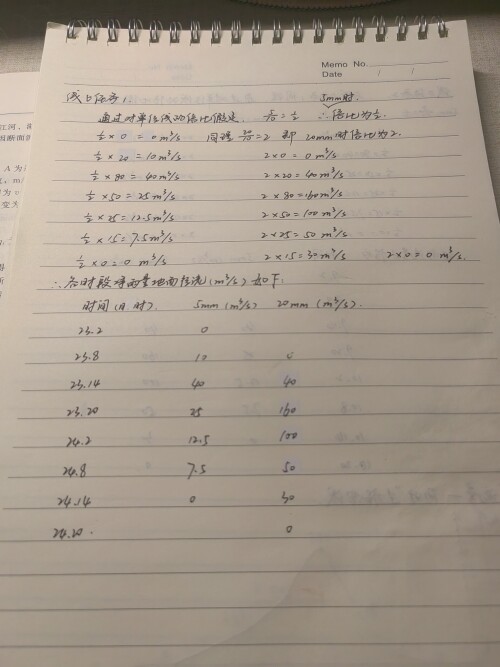 Memo No.
Date / /
5mm时.
通过对单位线的倍比假定, 5/10 = 1/2 ∴ 倍比为 1/2.
1/2 × 0 = 0 m³/s 同理 20/10 = 2 即 20mm时倍比为2.
1/2 × 20 = 10 m³/s 2 × 0 = 0 m³/s
1/2 × 80 = 40 m³/s 2 × 20 = 40 m³/s
1/2 × 50 = 25 m³/s 2 × 80 = 160 m³/s
1/2 × 25 = 12.5 m³/s 2 × 50 = 100 m³/s
1/2 × 15 = 7.5 m³/s 2 × 25 = 50 m³/s
1/2 × 0 = 0 m³/s 2 × 15 = 30 m³/s 2 × 0 = 0 m³/s.
∴ 各时段净雨量地面径流 (m³/s) 如下:
时间(日 时). 5mm (m³/s) 20mm (m³/s).
23.2 0
23.8 10 0
23.14 40 40
23.20 25 160
24.2 12.5 100
24.8 7.5 50
24.14 0 30
24.20. 0